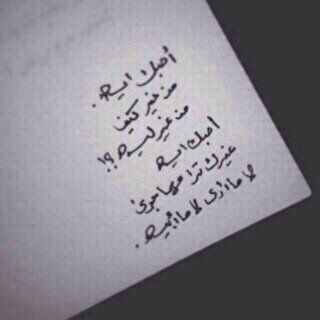 أحبك ايه .
من غير كيف
من غير ليه ؟!!
احبك ايه
غيرك ترا مهما جرى
لا ما أرى لا ما أبيه .